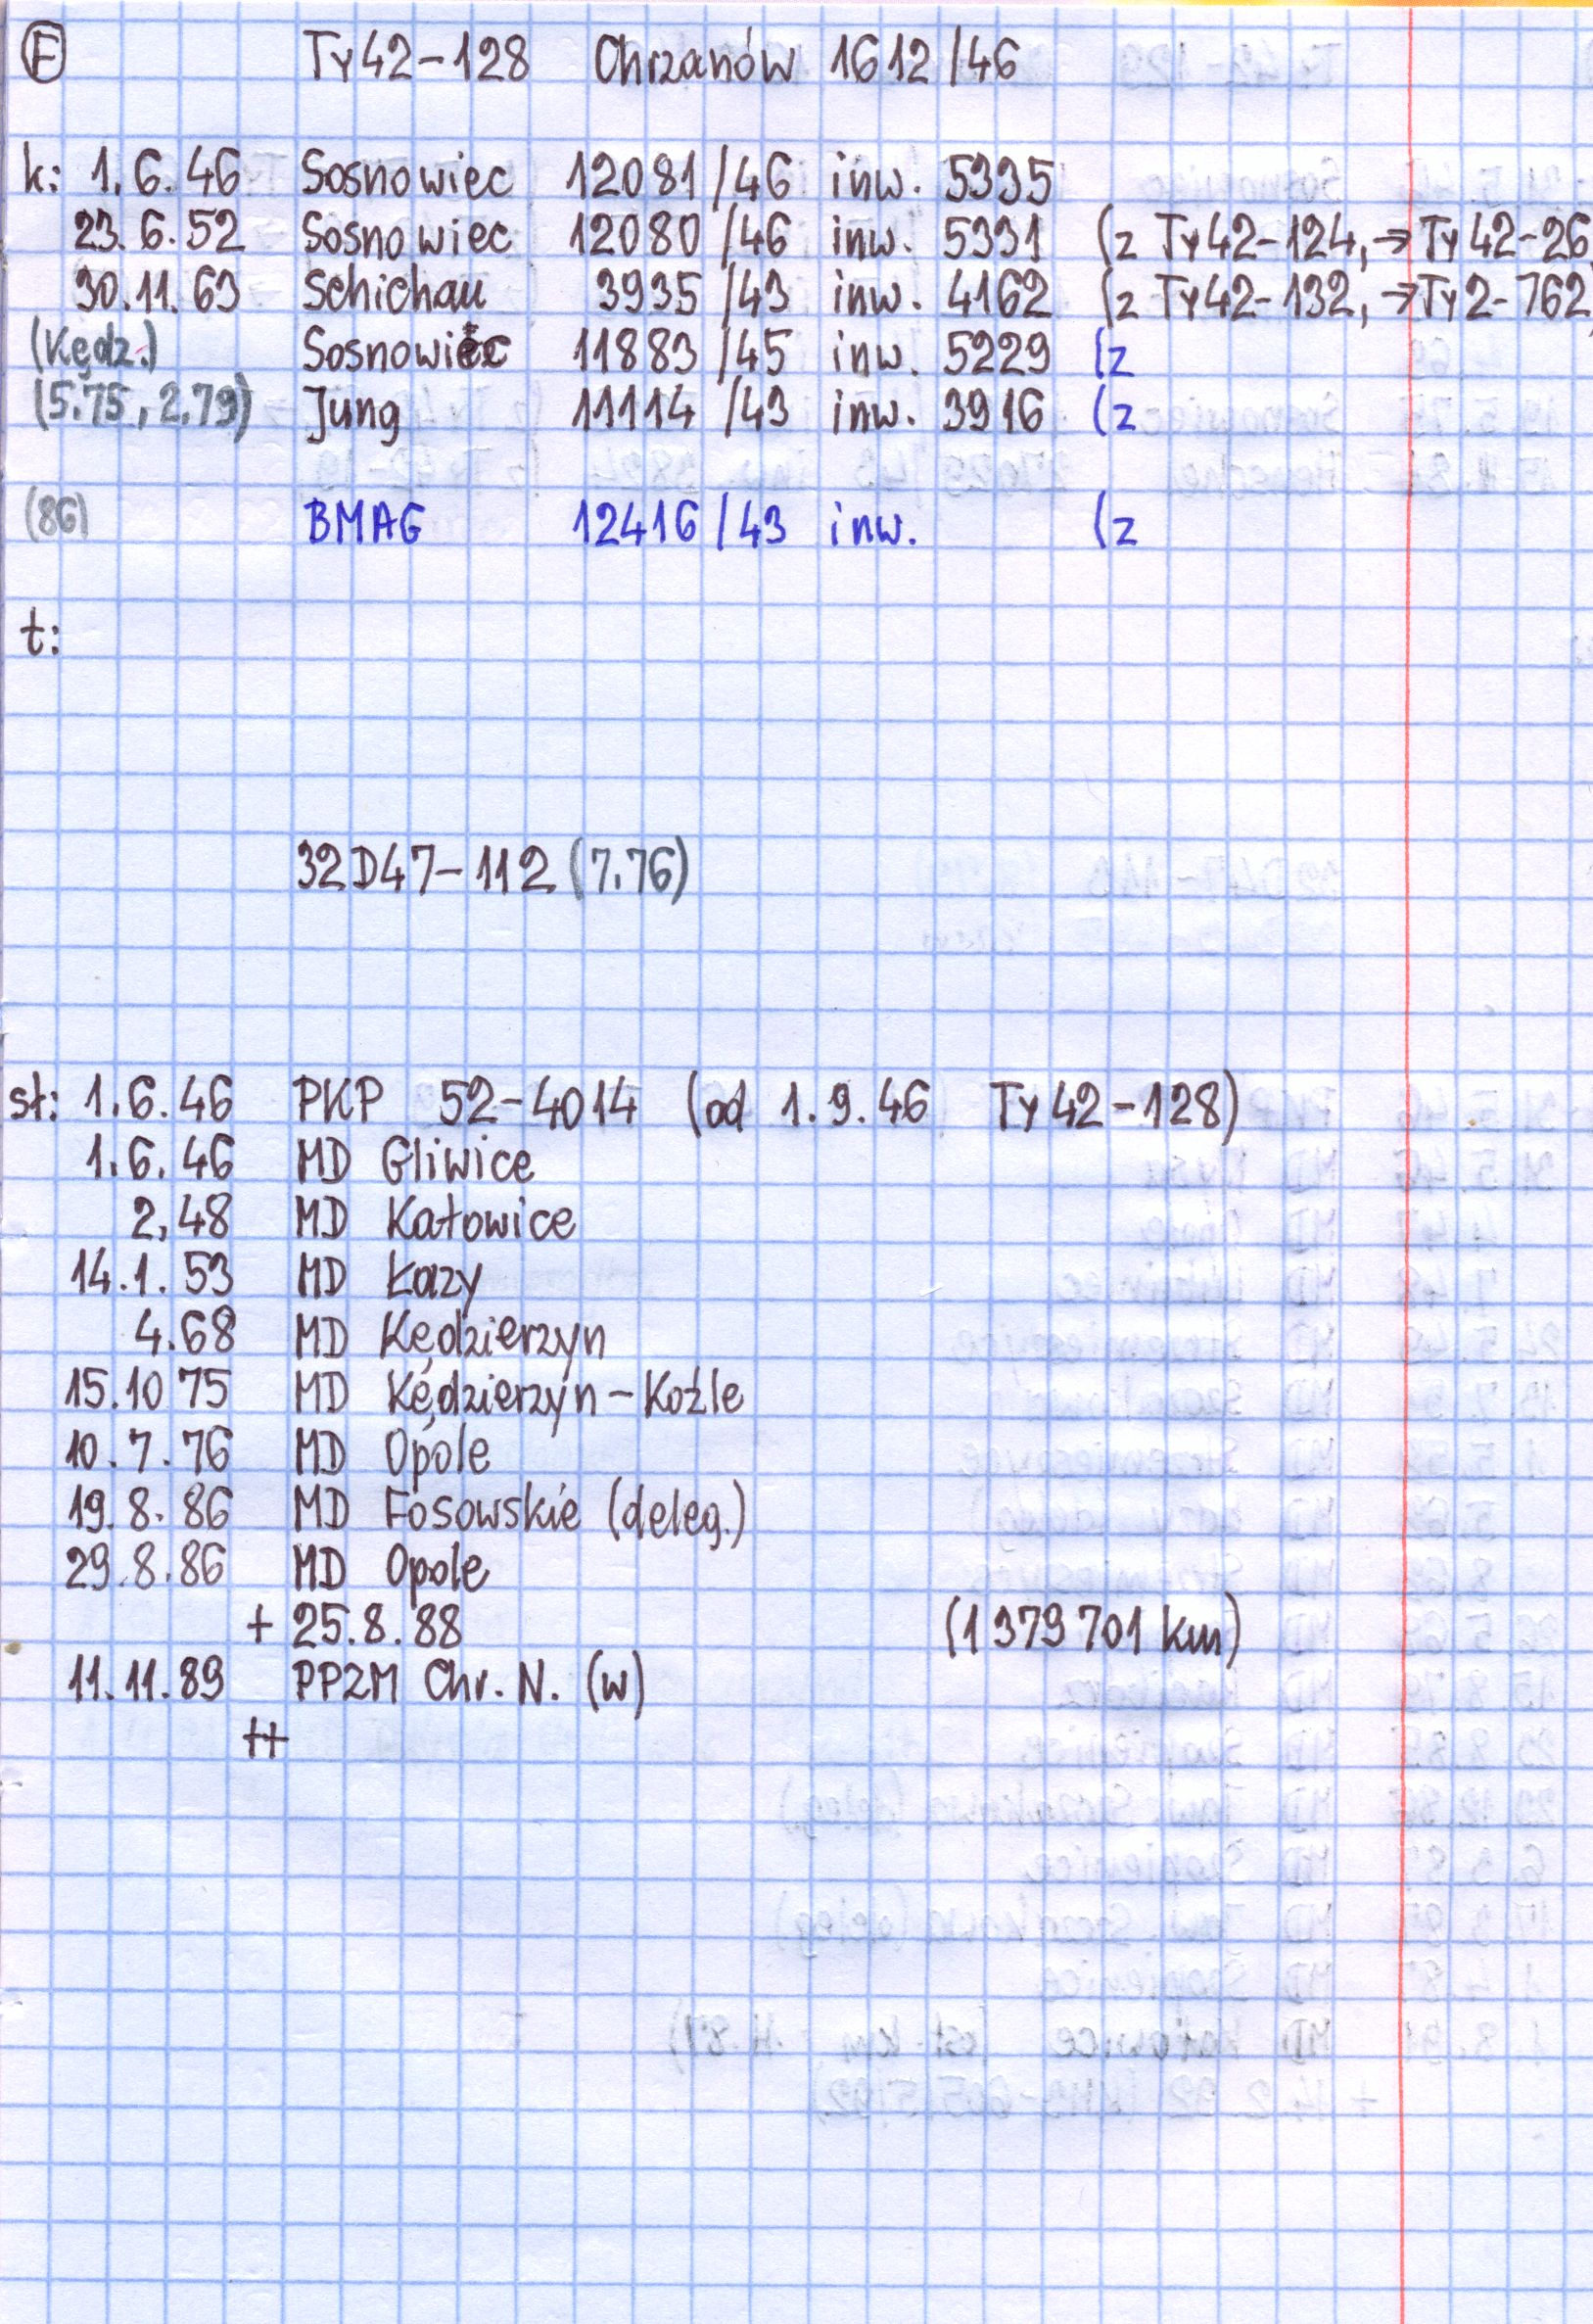 E Ty42-128 Chrzanów 1612/46
k: 1.6.46 Sosnowiec 12081/46 inw. 5335
23.6.52 Sosnowiec 12080/46 inw. 5331 (z Ty42-124, → Ty42-26
30.11.63 Schichau 3935/43 inw. 4162 (z Ty42-132, → Ty2-762
(Kędz.) Sosnowiec 11883/45 inw. 5229 (z
(5.75, 2.79) Jung 11114/43 inw. 3916 (z
(86) BMAG 12416/43 inw. (z
t:
32D47-112 (7.76)
st: 1.6.46 PKP 52-4014 (od 1.9.46 Ty42-128)
1.6.46 MD Gliwice
2,48 MD Katowice
14.1.53 MD Łazy
4.68 MD Kędzierzyn
15.10 75 MD Kędzierzyn-Koźle
10.7.76 MD Opole
19.8.86 MD Fosowskie (deleg.)
29.8.86 MD Opole
+ 25.8.88 (1 379 701 km)
11.11.89 PPZM Chr. N. (w)
++